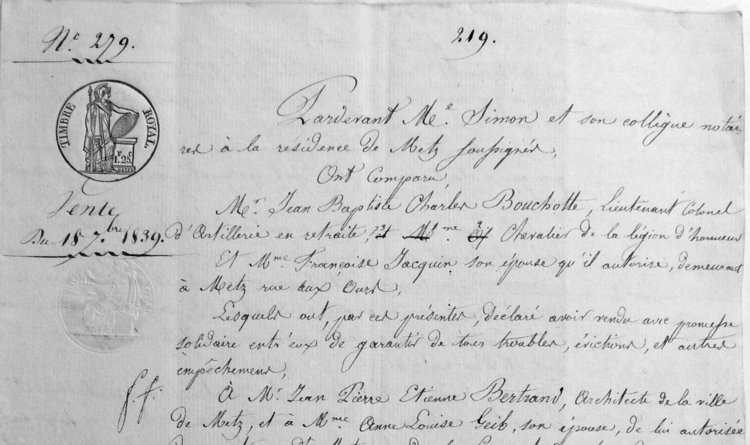 N.° 279.
219.
TIMBRE ROYAL.
1F. 25c
Vente
Du 18 7.bre 1839.
Pardevant Me. Simon et son collègue notai
res à la résidence de Metz soussignés,
Ont Comparu
Mr. Jean Baptiste Charles Bouchotte, lieutenant Colonel
d'Artillerie en retraite, Chevalier de la légion d'honneur
Et Mme. Françoise Jacquin son épouse qu'il autorise, demeurant
à Metz rue aux Ours,
Lesquels ont, par ces présentes, déclaré avoir vendu avec promesse
solidaire entr'eux de garantir de tous troubles, évictions, et autres
empêchemens,
À Mr. Jean Pierre Etienne Bertrand, Architecte de la ville
de Metz, et à Mme. Anne Louise Geib, son épouse, de lui autorisée